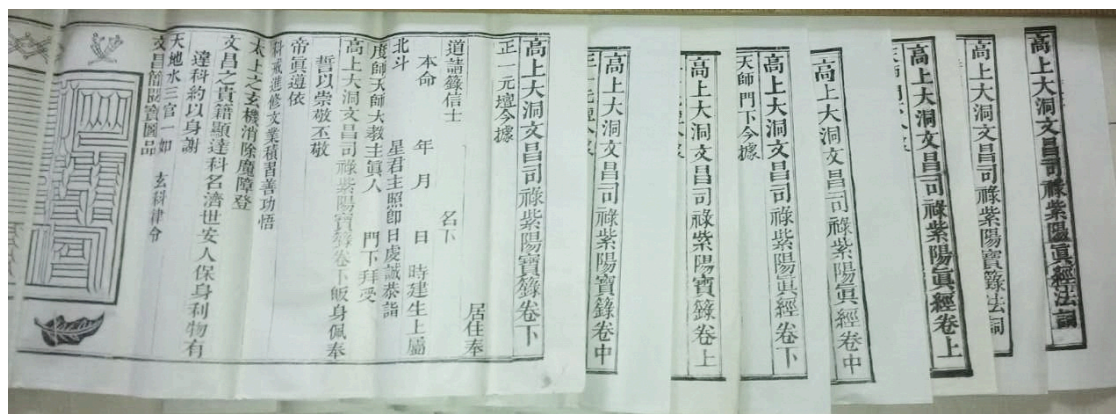 高上大洞文昌司祿紫陽眞經法詞
高上大洞文昌司祿紫陽寶籙法詞
高上大洞文昌司祿紫陽眞經卷上
高上大洞文昌司祿紫陽眞經卷中
高上大洞文昌司祿紫陽眞經卷下
天師門下今據
高上大洞文昌司祿紫陽寶籙卷上
高上大洞文昌司祿紫陽寶籙卷中
正一元壇今據
高上大洞文昌司祿紫陽寶籙卷下
正一元壇今據
居住奉
道請籙信士 名下
本命 年 月 日 時建生上屬
北斗 星君主照卽日虔誠恭詣
度師天師大教主眞人 門下拜受
高上大洞文昌司祿紫陽寶籙卷下皈身佩奉
誓以崇敬丕敬
帝眞遵依
科戒進修文業積習善功悟
太上之玄機消除魔障登
文昌之貴籍顯達科名濟世安人保身利物有
違科約以身謝
天地水三官一如 玄科律令
文昌簡閱寶圖品